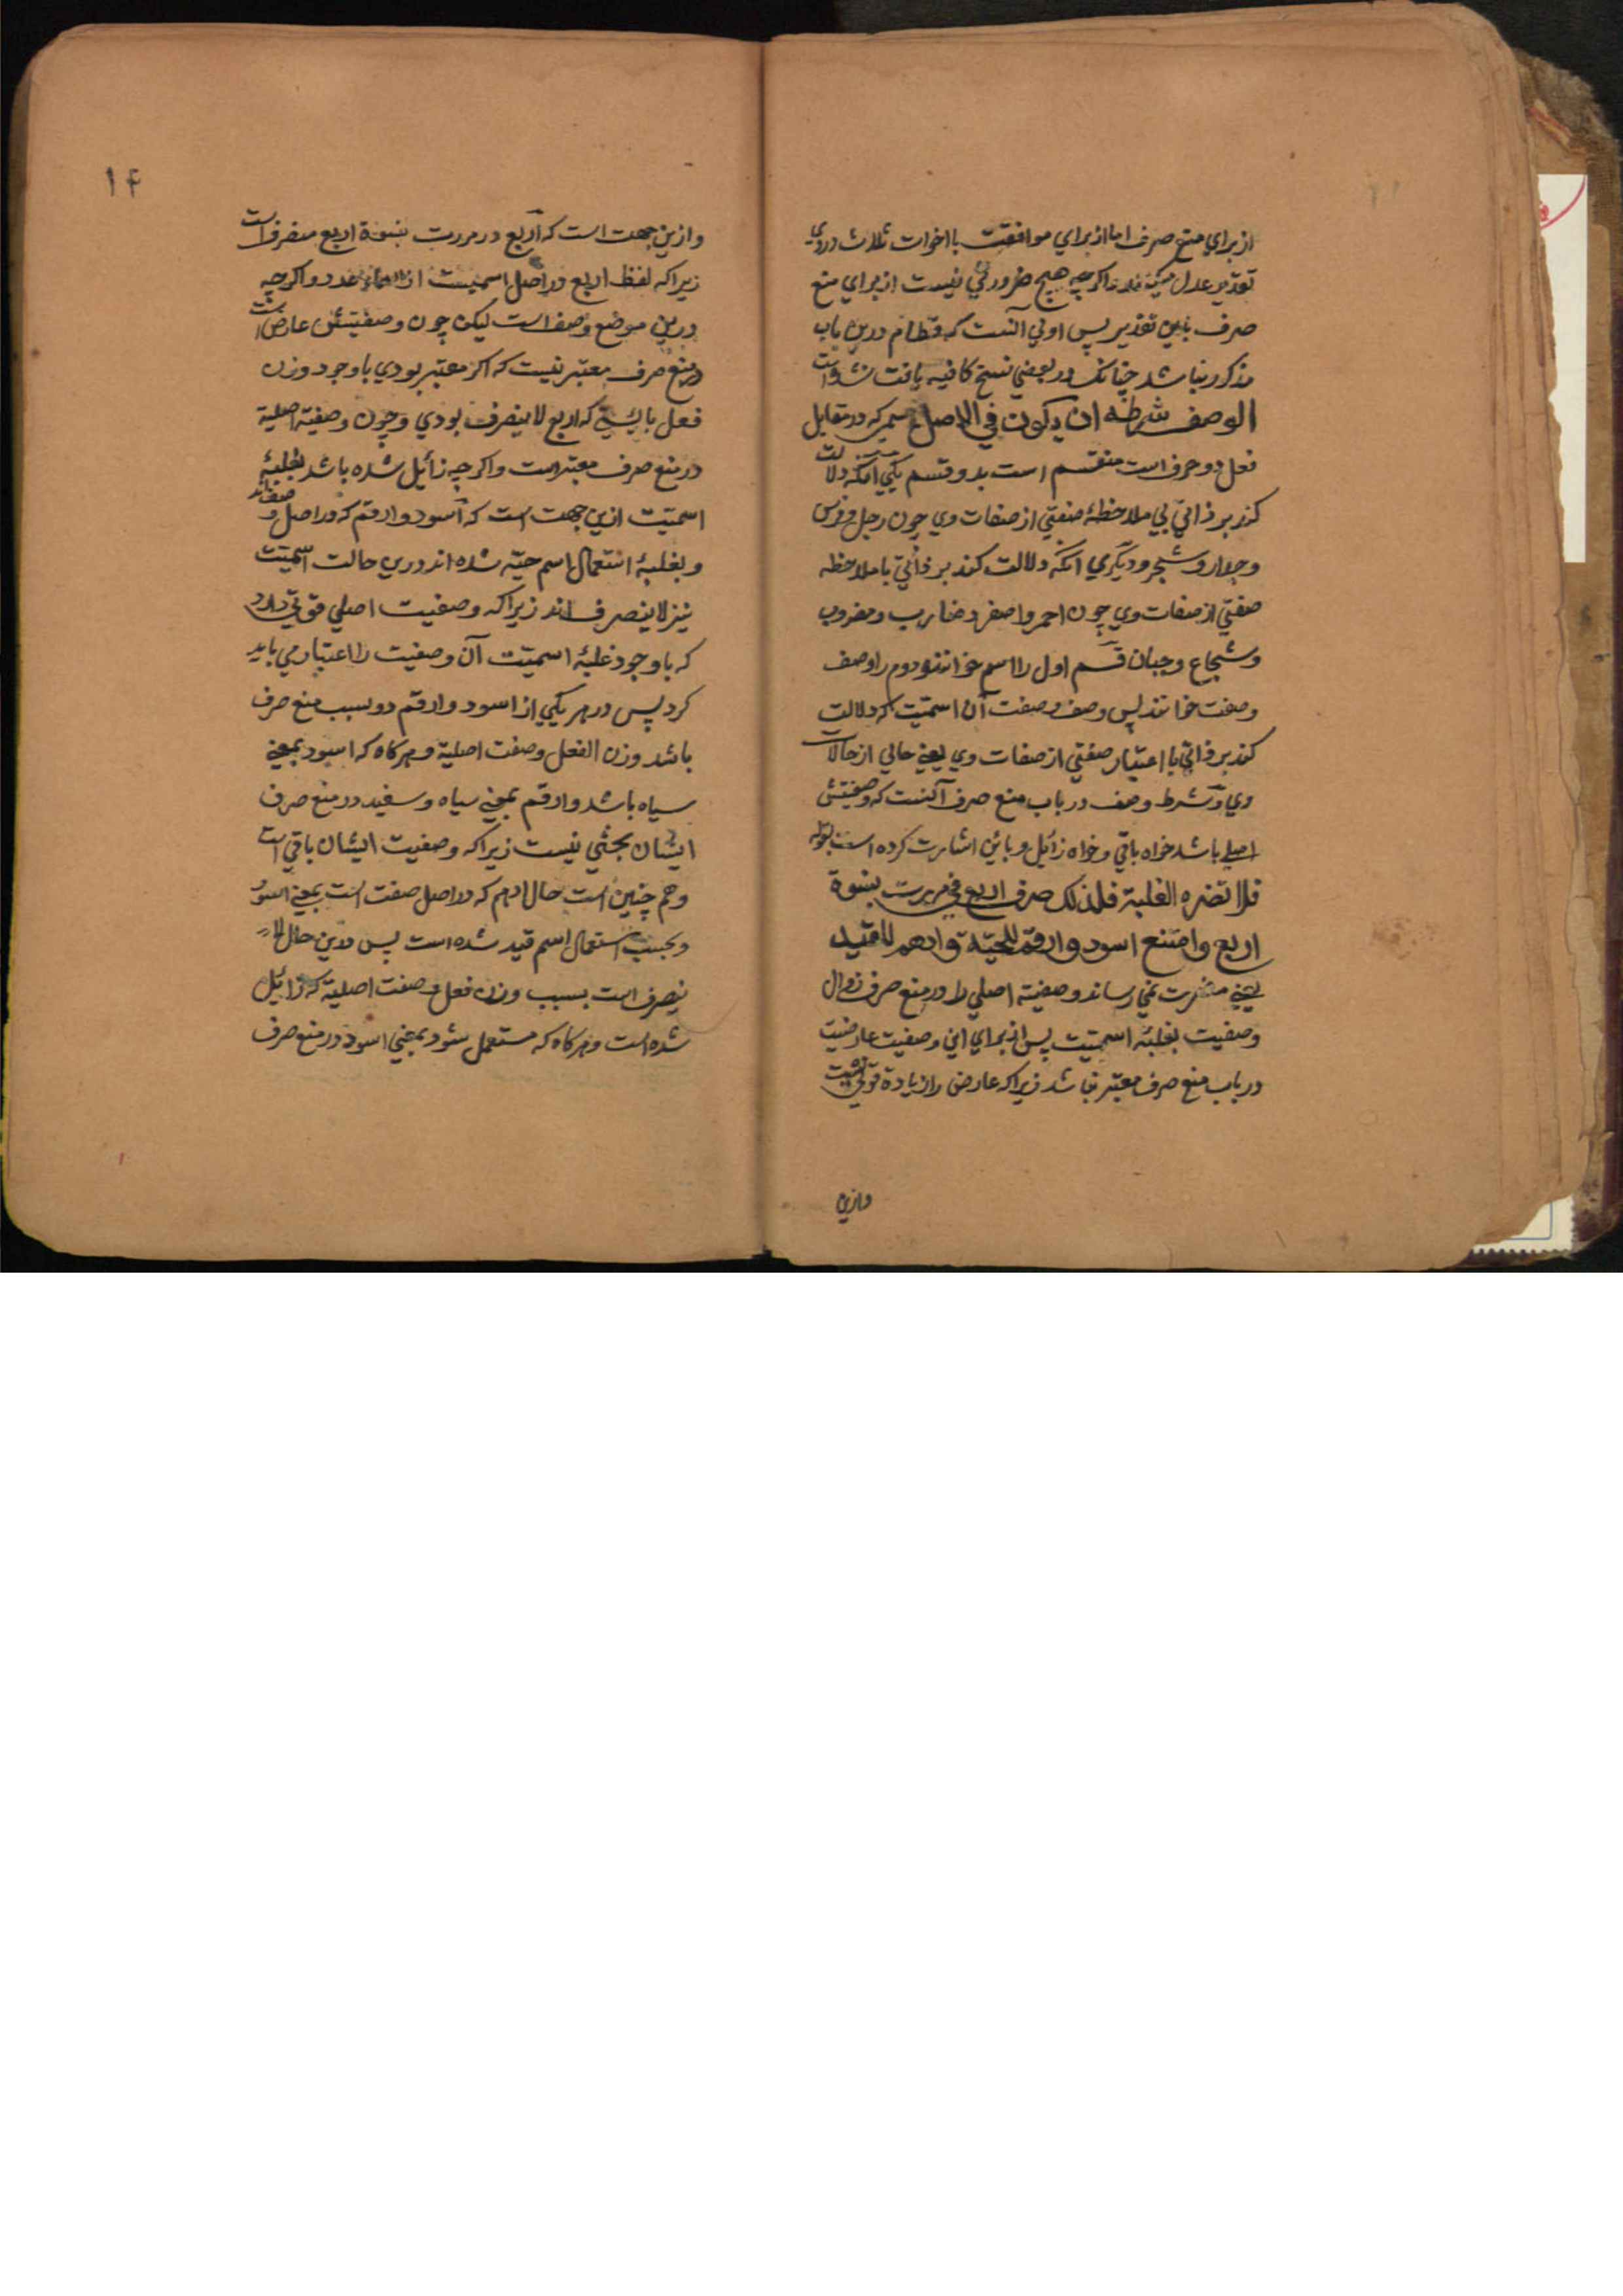 از براي منع صرف اما از براي موافقت با اخوات ثلاث در وي
تقدير عدل ميكنند و اكر چه هيچ ضرورتي نيست از براي منع
صرف باين تقدير پس اولي آنست كه قطام درين باب
مذكور نباشد چنانكه در بعضي نسخ كافيه يافت نشده است
الوصف شرطه ان يكون في الاصل اسمي كه در مقابل
فعل و حرف است منقسم است بدو قسم يكي آنكه دلالت
كند بر ذاتي بي ملاحظهٔ صفتي از صفات وي چون رجل و فرس
و جدار و شجر و ديكري آنكه دلالت كند بر ذاتي با ملاحظه
صفتي از صفات وي چون احمر و اصفر و ضارب و مضروب
و شجاع و جبان قسم اول را اسم خوانند و دوم را وصف
و صفت خوانند پس وصف و صفت آن اسميت كه دلالت
كند بر ذاتي با اعتبار صفتي از صفات وي يعني حالي از حالات
وي و شرط وصف در باب منع صرف آنست كه وصفيتش
اصلي باشد خواه باقي و خواه زائل و باين اشارت كرده است بقوله
فلا تضره الغلبة فلذلك صرف اربع في مررت بنسوة
اربع وامتنع اسود وارقم للحية وادهم للقيد
يعني مضرت نمي رساند وصفيته اصلي را در منع صرف زوال
وصفيت بغلبهٔ اسميت پس از براي اني وصفيت عارضيت
در باب منع صرف معتبر نباشد زيرا كه عارض را زيادة قوتي نيست
وازين
۱۴
و ازين جهت است كه اربع در مررت بنسوة اربع منصرف است
زيرا كه لفظ اربع در اصل اسميست از اسماء عدد و اكر چه
درين موضع وصف است ليكن چون وصفيتش عارض است
در منع صرف معتبر نيست كه اكر معتبر بودي با وجود وزن
فعل بايستي كه اربع لا ينصرف بودي و چون وصفية اصلية
در منع صرف معتبر است و اكر چه زائل شده باشد بغلبهٔ
اسميت ازين جهت است كه اسود و ارقم كه در اصل صفت اند و
و بغلبهٔ استعمال اسم حيّه شده اند درين حالت اسميت
نيز لا ينصرف اند زيرا كه وصفيت اصلي قوتي دارد
كه با وجود غلبهٔ اسميت آن وصفيت را اعتبار مي بايد
كرد پس در هر يكي از اسود و ارقم دو سبب منع صرف
باشد وزن الفعل و صفت اصلية و هر كاه كه اسود بمعني
سياه باشد و ارقم بمعني سياه و سفيد در منع صرف
ايشان بحثي نيست زيرا كه وصفيت ايشان باقي است
و هم چنين است حال ادهم كه در اصل صفت است بمعني اسود
و بحسب استعمال اسم قيد شده است پس درين حال لا
ينصرف است بسبب وزن فعل و صفت اصلية كه زائل
شده است و هر كاه كه مستعمل شود بمعني اسود در منع صرف